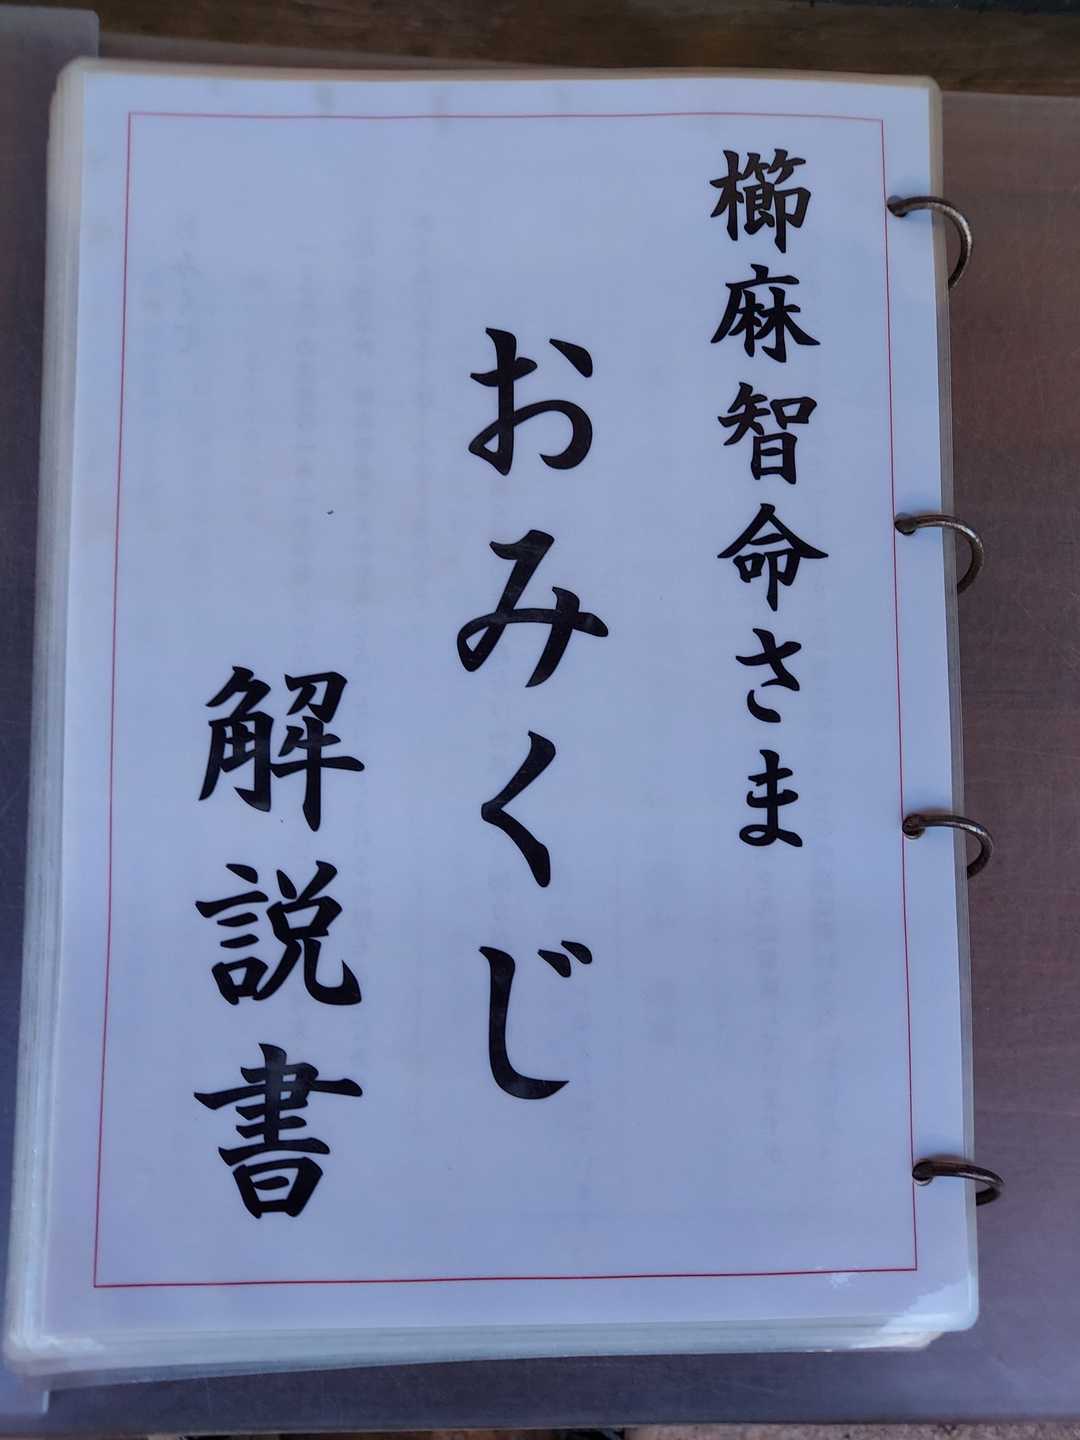 櫛麻智命さま
おみくじ
解説書